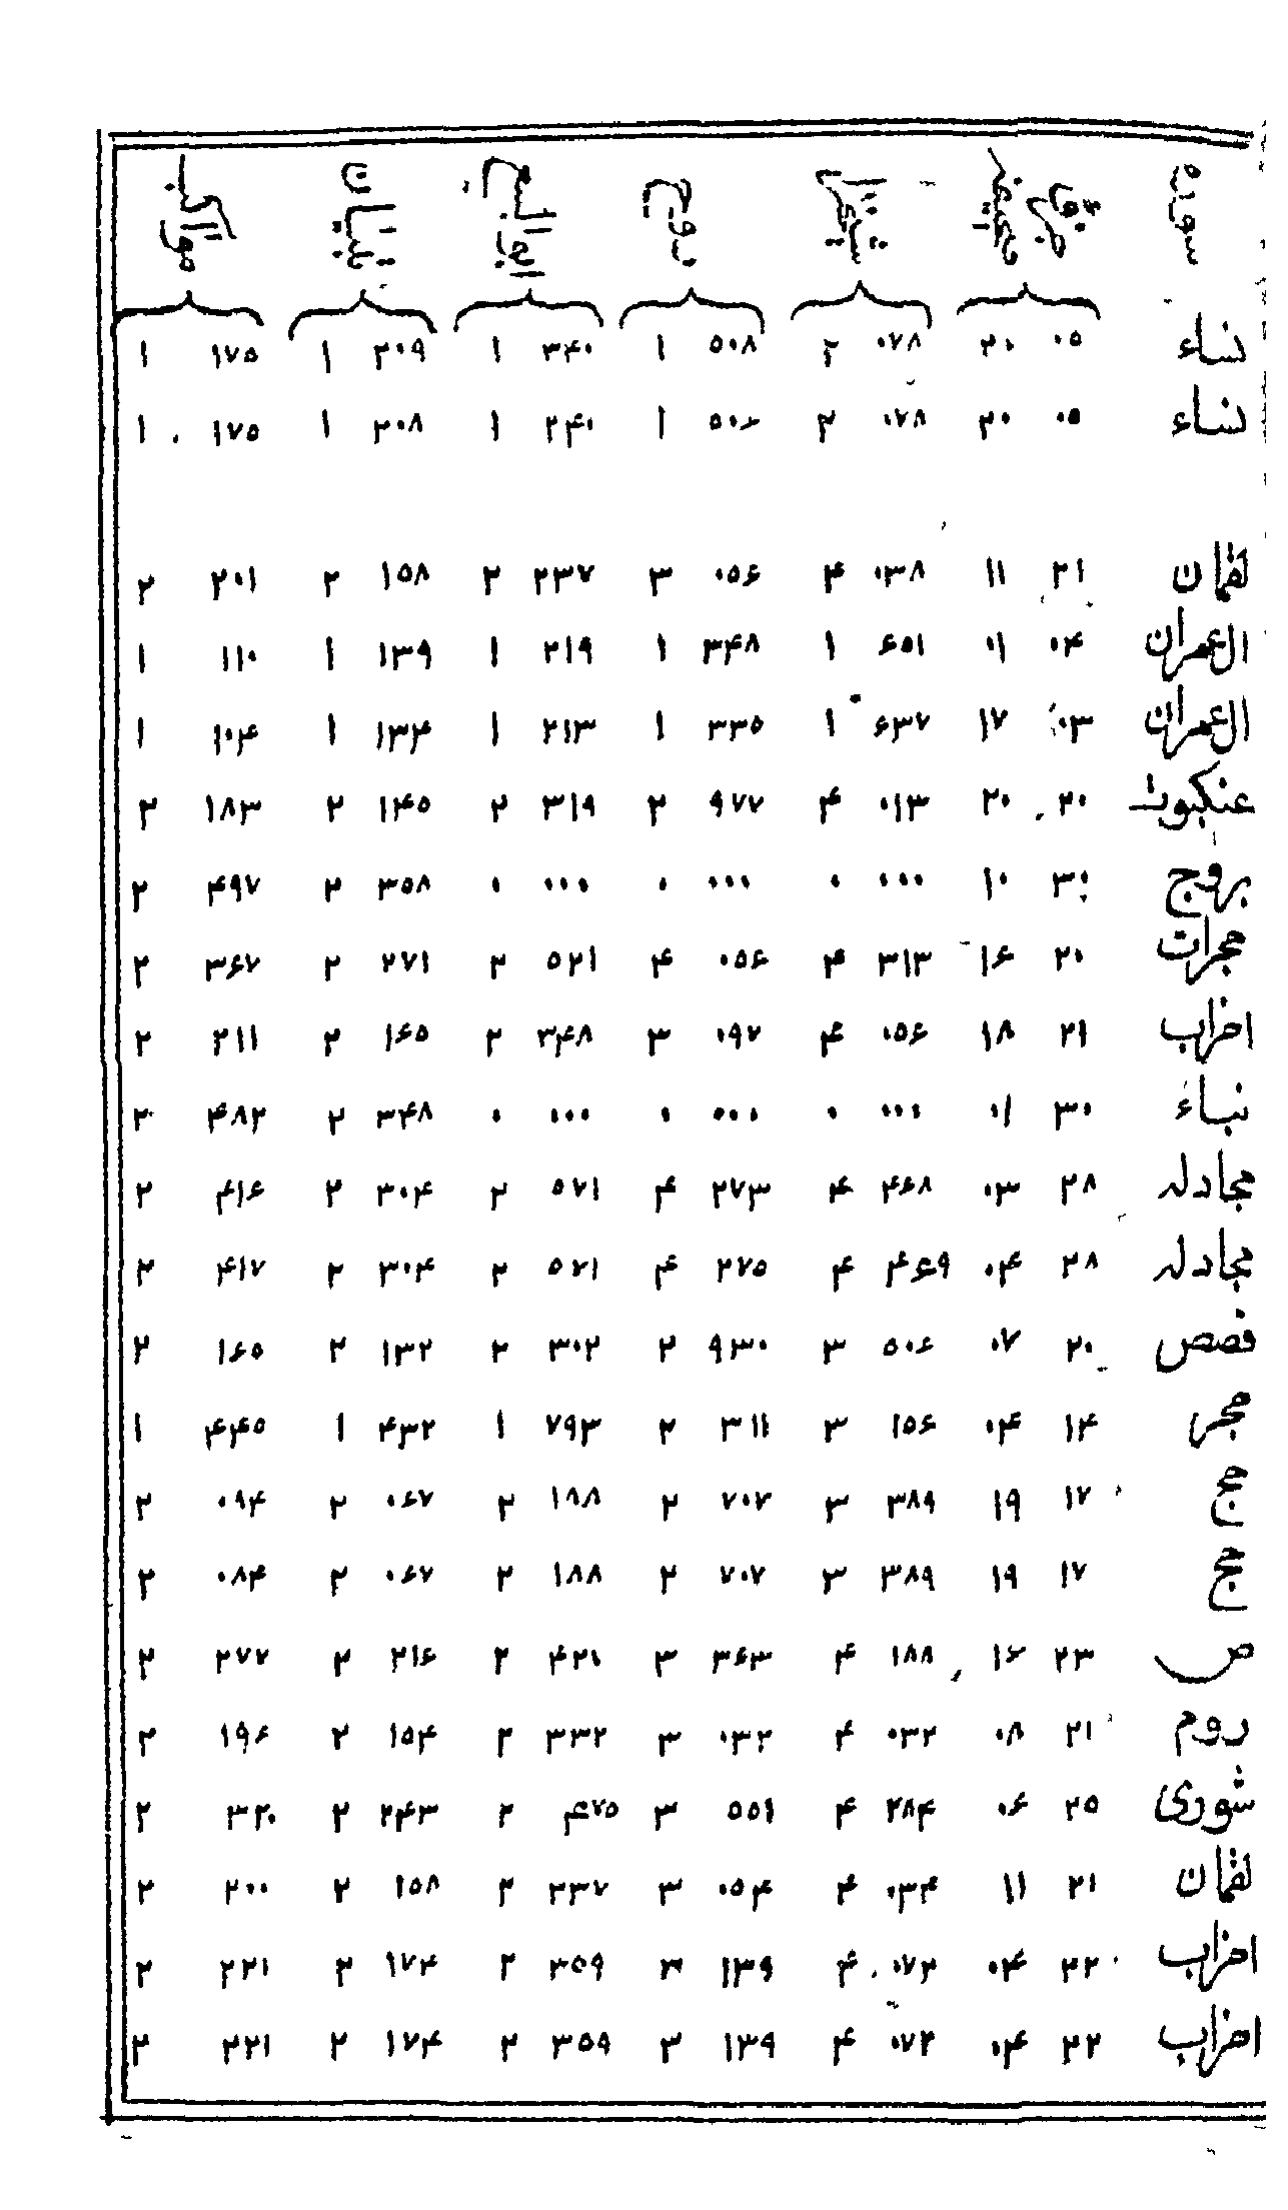 سوره
نساء ۰۵ ۲۰ ۰۷۸ ۲ ۵۰۸ ۱ ۳۴۰ ۱ ۲۰۹ ۱ ۱۷۵ ۱
نساء ۰۵ ۲۰ ۰۷۸ ۲ ۵۰۶ ۱ ۲۴۰ ۱ ۲۰۸ ۱ ۱۷۵ ۱
لقمان ۲۱ ۱۱ ۰۳۸ ۴ ۰۵۶ ۳ ۲۳۷ ۲ ۱۵۸ ۲ ۲۰۱ ۲
ال عمران ۰۴ ۰۱ ۶۵۱ ۱ ۳۴۸ ۱ ۲۱۹ ۱ ۱۳۹ ۱ ۱۱۰ ۱
ال عمران ۰۳ ۱۷ ۶۳۷ ۱ ۳۳۵ ۱ ۲۱۳ ۱ ۱۳۴ ۱ ۱۰۴ ۱
عنکبوت ۲۰ ۲۰ ۰۱۳ ۴ ۹۷۷ ۲ ۳۱۹ ۲ ۱۴۵ ۲ ۱۸۳ ۲
بروج ۳۰ ۱۰ ۰۰۰ ۰ ۰۰۰ ۰ ۰۰۰ ۰ ۳۵۸ ۲ ۴۹۷ ۲
حجرات ۲۰ ۱۶ ۳۱۳ ۴ ۰۵۶ ۴ ۵۲۱ ۲ ۲۷۱ ۲ ۳۶۷ ۲
احزاب ۲۱ ۱۸ ۰۵۶ ۴ ۰۹۷ ۳ ۳۴۸ ۲ ۱۶۵ ۲ ۲۱۱ ۲
نباء ۳۰ ۰۱ ۰۰۰ ۰ ۰۰۰ ۰ ۰۰۰ ۰ ۳۴۸ ۲ ۴۸۲ ۲
مجادلہ ۲۸ ۰۳ ۴۶۸ ۴ ۲۷۳ ۴ ۵۷۱ ۲ ۳۰۴ ۲ ۴۱۶ ۲
مجادلہ ۲۸ ۰۴ ۴۶۹ ۴ ۲۷۵ ۴ ۵۷۱ ۲ ۳۰۴ ۲ ۴۱۷ ۲
قصص ۲۰ ۰۷ ۵۰۶ ۳ ۹۳۰ ۲ ۳۰۲ ۲ ۱۳۲ ۲ ۱۶۵ ۲
حجر ۱۴ ۰۴ ۱۵۶ ۳ ۳۱۱ ۲ ۷۹۳ ۱ ۴۳۲ ۱ ۴۴۵ ۱
حج ۱۷ ۱۹ ۳۸۹ ۳ ۷۰۷ ۲ ۱۸۸ ۲ ۰۶۷ ۲ ۰۹۴ ۲
حج ۱۷ ۱۹ ۳۸۹ ۳ ۷۰۷ ۲ ۱۸۸ ۲ ۰۶۷ ۲ ۰۸۴ ۲
ص ۲۳ ۱۶ ۱۸۸ ۴ ۳۶۳ ۳ ۴۲۱ ۲ ۲۱۶ ۲ ۲۷۷ ۲
روم ۲۱ ۰۸ ۰۳۲ ۴ ۰۳۲ ۳ ۳۳۲ ۲ ۱۵۴ ۲ ۱۹۶ ۲
شوری ۲۵ ۰۶ ۲۸۴ ۴ ۵۵۱ ۳ ۴۷۵ ۲ ۲۴۳ ۲ ۳۲۰ ۲
لقمان ۲۱ ۱۱ ۰۳۴ ۴ ۰۵۴ ۳ ۳۳۷ ۲ ۱۵۸ ۲ ۲۰۰ ۲
احزاب ۲۲ ۰۴ ۰۷۲ ۴ ۱۳۹ ۳ ۳۵۹ ۲ ۱۷۴ ۲ ۲۲۱ ۲
احزاب ۲۲ ۰۴ ۰۷۲ ۴ ۱۳۹ ۳ ۳۵۹ ۲ ۱۷۴ ۲ ۲۲۱ ۲